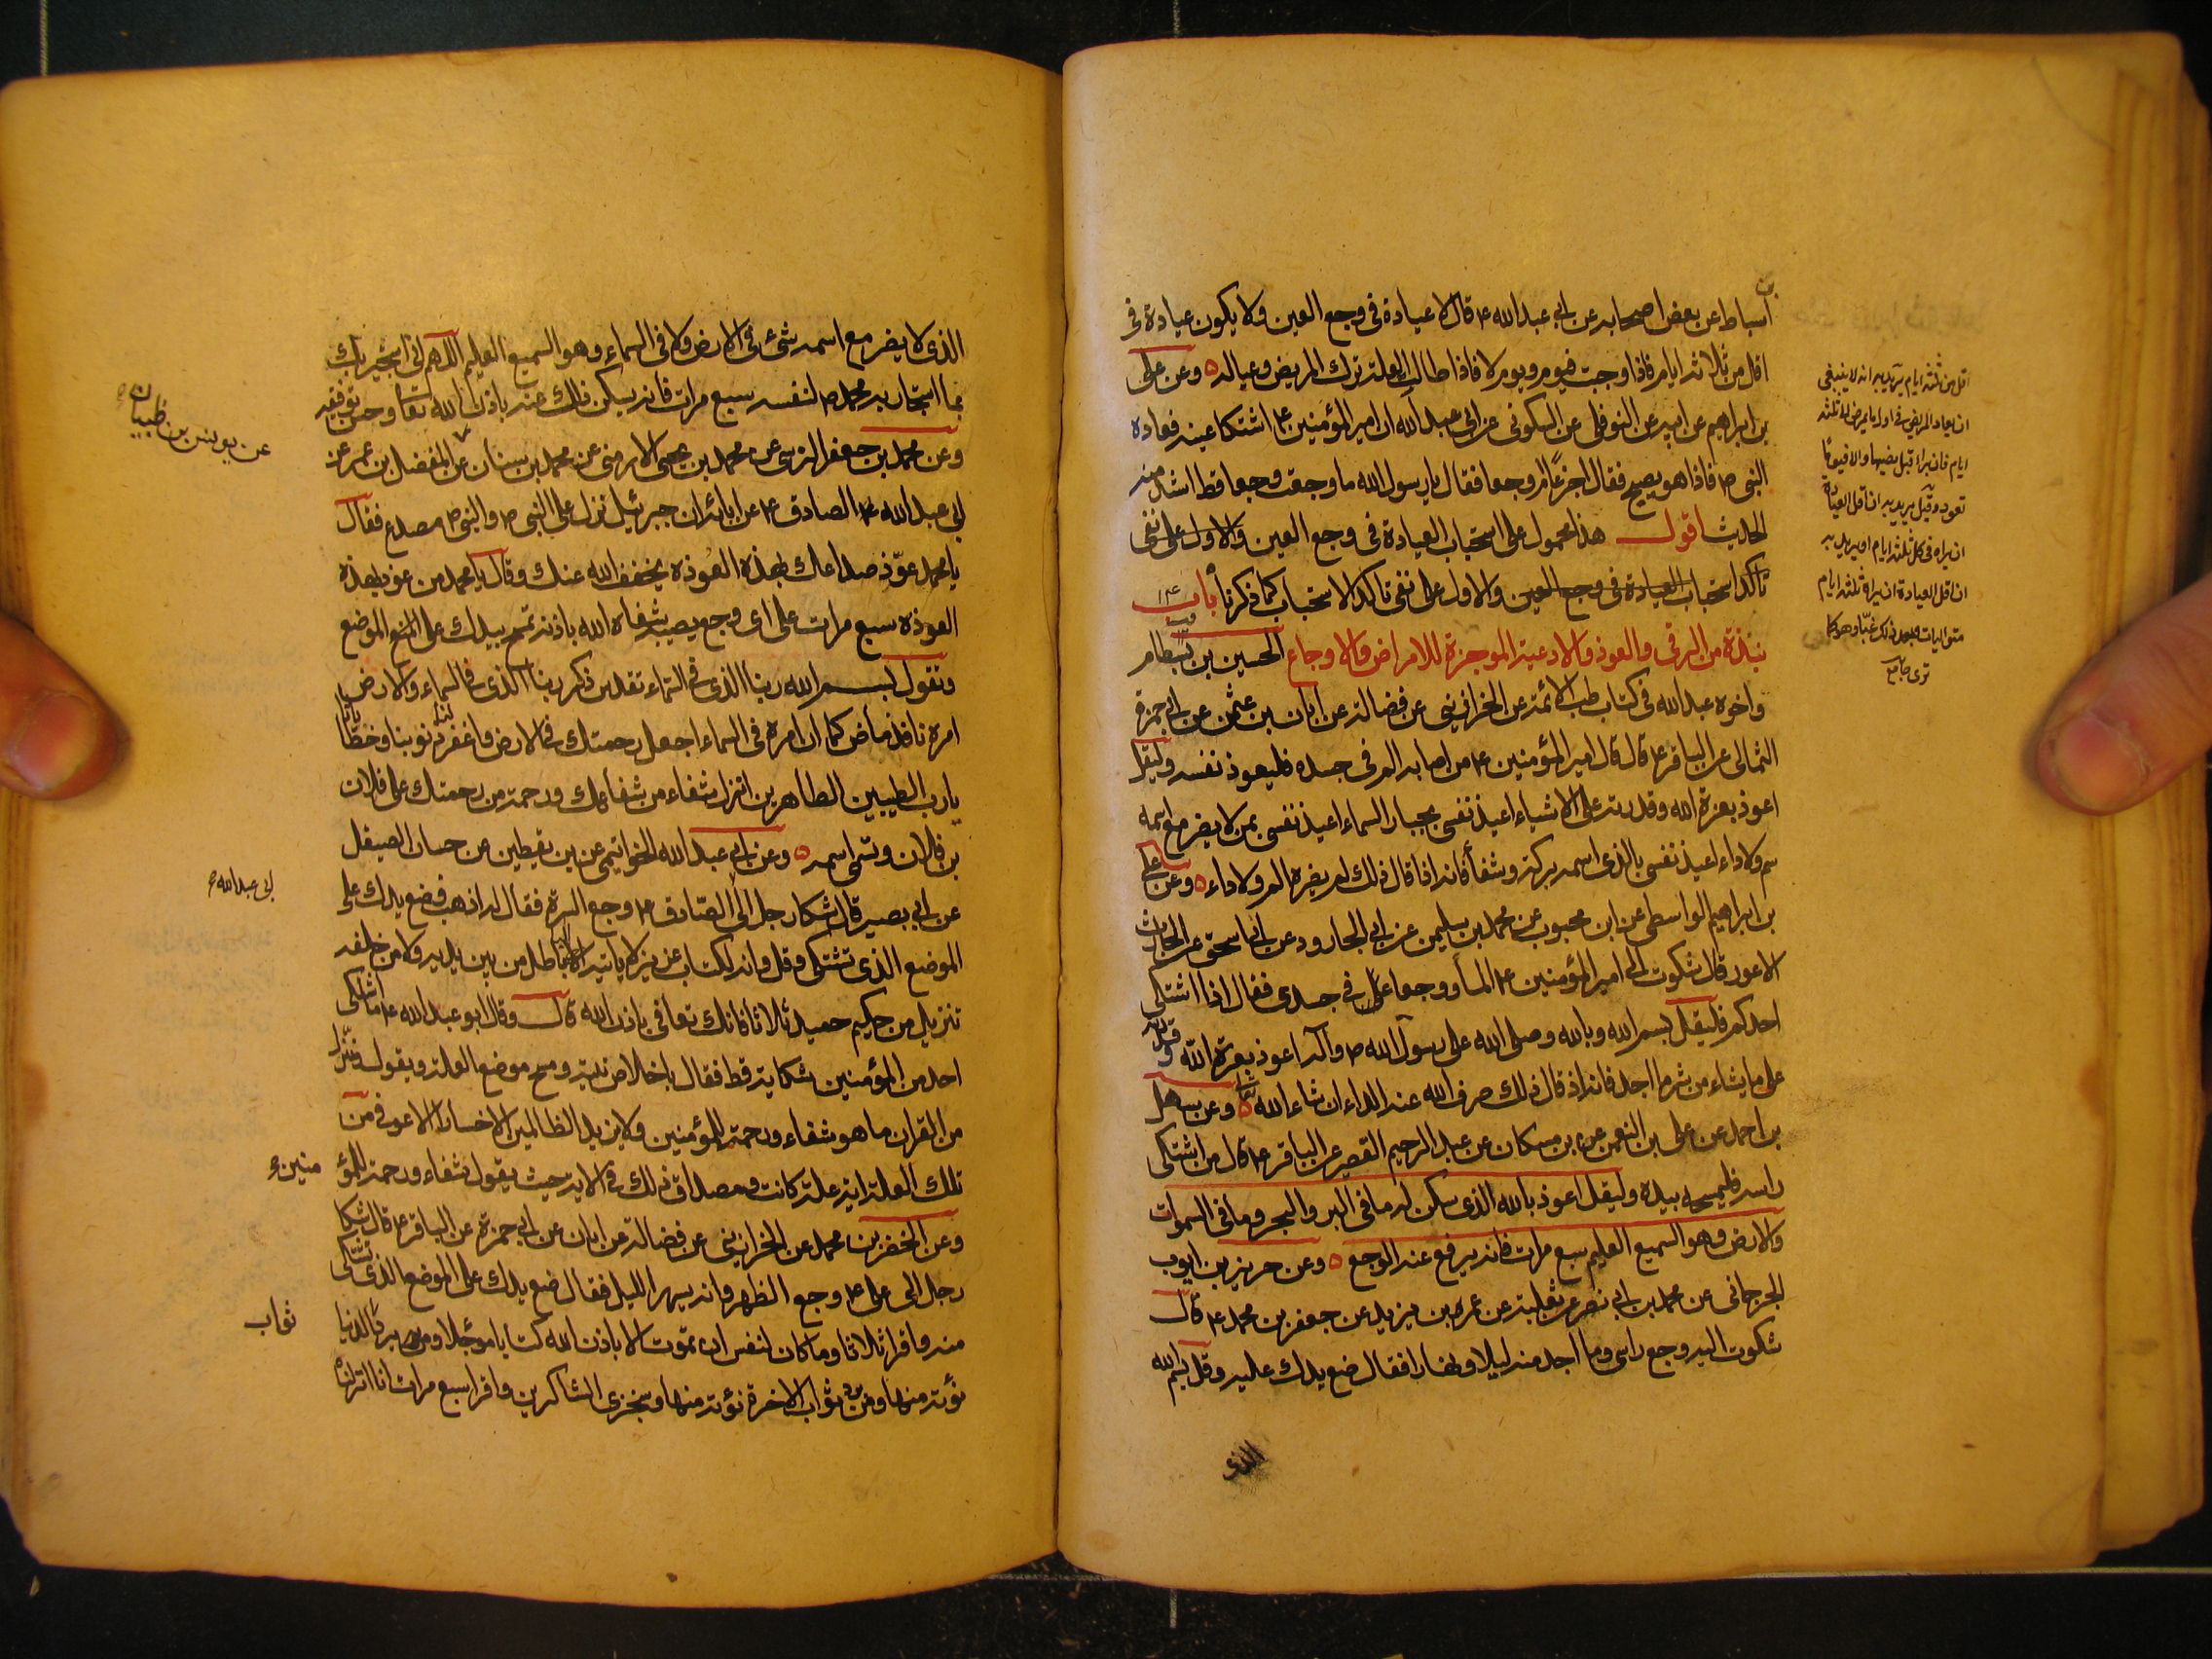 اسباط عن بعض اصحابه عن ابي عبد الله ع قال لا عيادة في وجع العين ولا يكون عيادة في
اقل من ثلاثة ايام فاذا وجبت فيوم ويوم لا فاذا طالت العلة ترك المريض وعياله وعن علي
بن ابراهيم عن ابيه عن النوفلي عن السكوني عن ابي عبد الله ان امير المؤمنين ع اشتكا عينه فعاده
النبي ص فاذا هو يصيح فقال اجزعا ام وجعا فقال يا رسول الله ما وجعت وجعا قط اشد منه
الحديث اقول هذا محمول على استحباب العيادة في وجع العين والاول على نفي
تاكد استحباب العيادة في وجع العين والاول على نفي تاكد الاستحباب كما ذكرنا باب ١٣٤
نبذة من الرقى والعوذ والادعية الموجزة للامراض والاوجاع الحسين بن بسطام
واخوه عبد الله في كتاب طب الائمة عن الخرازيني عن فضالة عن ابان بن عثمن عن ابي حمزة
الثمالي عن الباقر ع قال قال امير المؤمنين ع من اصابه الم في جسده فليعوذ نفسه وليقل
اعوذ بعزة الله وقدرته على الاشياء اعيذ نفسي بجبار السماء اعيذ نفسي بمن لا يضر مع اسمه
سم ولا داء اعيذ نفسي بالذي اسمه بركة وشفأ فانه اذا قال ذلك لم يضره الم ولا داء وعن علي
بن ابراهيم الواسطي عن ابن محبوب عن محمد بن سليمن عن ابي الجارود عن ابي اسحق عن الحارث
الاعور قال شكوت الى امير المؤمنين ع الما ووجعا في جسدي فقال اذا اشتكى
احدكم فليقل بسم الله وبالله وصلى الله على رسول الله ص وآله اعوذ بعزة الله وقدرته
على ما يشاء من شر ما اجد فانه اذ قال ذلك صرف الله عنه الداء ان شاء الله تعا وعن سهل
بن احمد عن علي بن النعمن عن بن مسكان عن عبد الرحيم القصير عن الباقر ع قال من اشتكى
راسه فليمسحه بيده وليقل اعوذ بالله الذي سكن له ما في البر والبحر وما في السموات
والارض وهو السميع العليم سبع مرات فانه يرفع عنه الوجع وعن حريز بن ايوب
الجرجاني عن محمد بن ابي نصر عن ثعلبة عن عمرو بن يزيد عن جعفر بن محمد ع قال
شكوت اليه وجع راسي وما اجد منه ليلا ونهارا فقال ضع يدك عليه وقل بسم الله
الذي
اقل من ثلثة ايام يريد به انه لا ينبغي
ان يعاد المريض في اول ما يمرض الى ثلثة
ايام فان براء قبل مضيها والا فيوما
تعود وقيل يريد به ان اقل العيادة
ان يراه في كل ثلثة ايام او يريد به
ان اقل العيادة ان يراه ثلثة ايام
متواليات وبعد ذلك غبا وهو كما
ترى
الذي لا يضر مع اسمه شيء في الارض ولا في السماء وهو السميع العليم اللهم اني استجير بك
بما استجار به محمد ص لنفسه سبع مرات فانه يسكن ذلك عنه باذن الله تعا وحسن توفيقه
وعن محمد بن جعفر البرسي عن محمد بن يحيى الارمني عن محمد بن سنان عن المفضل بن عمر عن
ابي عبد الله الصادق ع عن ابائه ان جبرئيل نزل على النبي ص والنبي ص مصدع فقال
يا محمد عوّذ صداعك بهذه العوذة يخفف الله عنك وقال يا محمد من عوذ بهذه
العوذة سبع مرات على اي وجع يصيبه شفاه الله باذنه تمسح بيدك على الموضع
وتقول بسم الله ربنا الذي في السماء تقدس ذكر ربنا الذي في السماء والارض
امره نافذ ماض كما ان امره في السماء اجعل رحمتك في الارض واغفر لنا ذنوبنا وخطايانا
يا رب الطيبين الطاهرين انزل شفاء من شفائك ورحمة من رحمتك على فلان
بن فلان وتسمي اسمه وعن ابي عبد الله الخواتيمي عن بن يقطين عن حسان الصيقل
عن ابي بصير قال شكا رجل الى الصادق ع وجع السرة فقال له اذهب فضع يدك على
الموضع الذي تشتكي وقل وانه لكتاب عزيز لا ياتيه الباطل من بين يديه ولا من خلفه
تنزيل من حكيم حميد ثلاثا فانك تعافى باذن الله قال وقال ابو عبد الله ع ما اشتكى
احد من المؤمنين شكاية قط فقال باخلاص نية ومسح موضع العلة ويقول وننزل
من القرآن ما هو شفاء ورحمة للمؤمنين ولا يزيد الظالمين الا خسارا الا عوفي من
تلك العلة اية علة كانت ومصداق ذلك في الاية حيث يقول شفاء ورحمة للمؤ
وعن الخضر بن محمد عن الخرازيني عن فضالة عن ابان عن ابي حمزة عن الباقر ع قال شكا
رجل الى علي ع وجع الظهر وانه يسهر الليل فقال ضع يدك على الموضع الذي تشتكي
منه واقرا ثلاثا وما كان لنفس ان تموت الا باذن الله كتابا مؤجلا ومن يرد الدنيا
نؤته منها ومن يرد ثواب الاخرة نؤته منها وسنجزي الشاكرين واقرا سبع مرات انا انزلناه
عن يونس بن ظبيان
ابي عبد الله
منين
ثواب